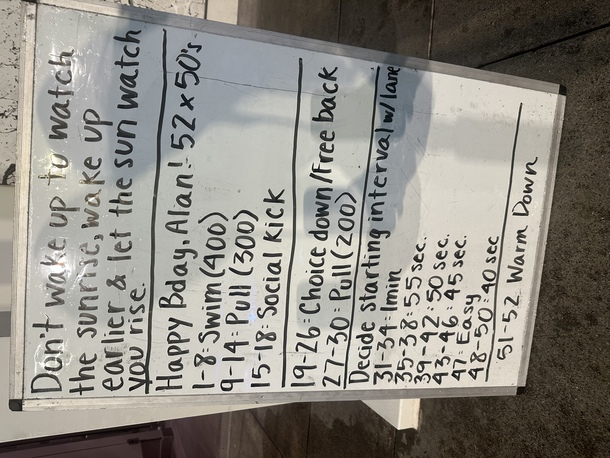 Don't wake up to watch
the sunrise, wake up
earlier & let the sun watch
you rise.
Happy Bday, Alan! 52x50's
1-8: Swim (400)
9-14: Pull (300)
15-18: Social Kick
19-26: Choice down/Free back
27-30: Pull (200)
Decide starting interval w/lane
31-34: 1min
35-38: 55 sec.
39-42: 50 sec.
43-46: 45 sec.
47: Easy
48-50: 40 sec
51-52 Warm Down